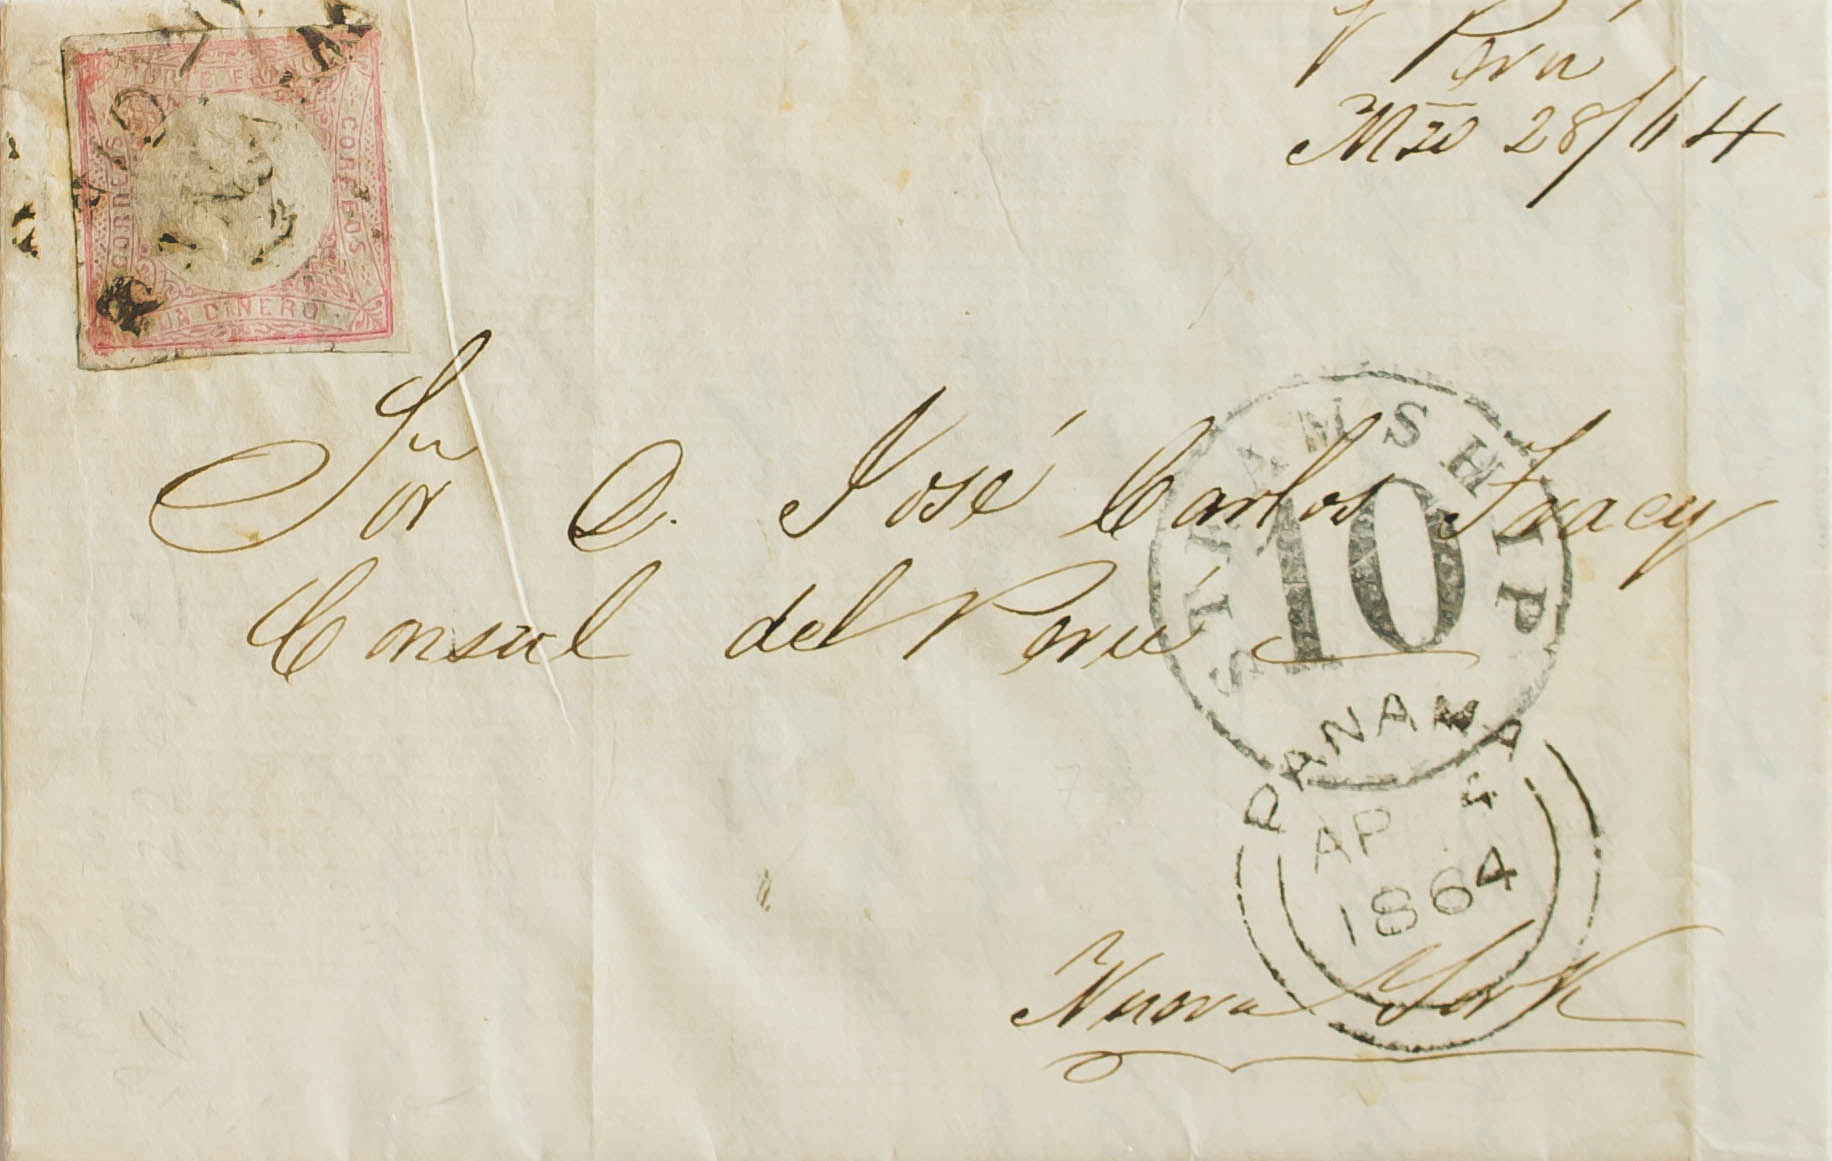 PORTE FRANCO
CORREOS
CORREOS
UN DINERO
p. Perú
Mzo 28/64
Sor D. José Carlos Tracy
Consul del Perú
STEAMSHIP
10
PANAMA
AP 4
1864
Nueva York